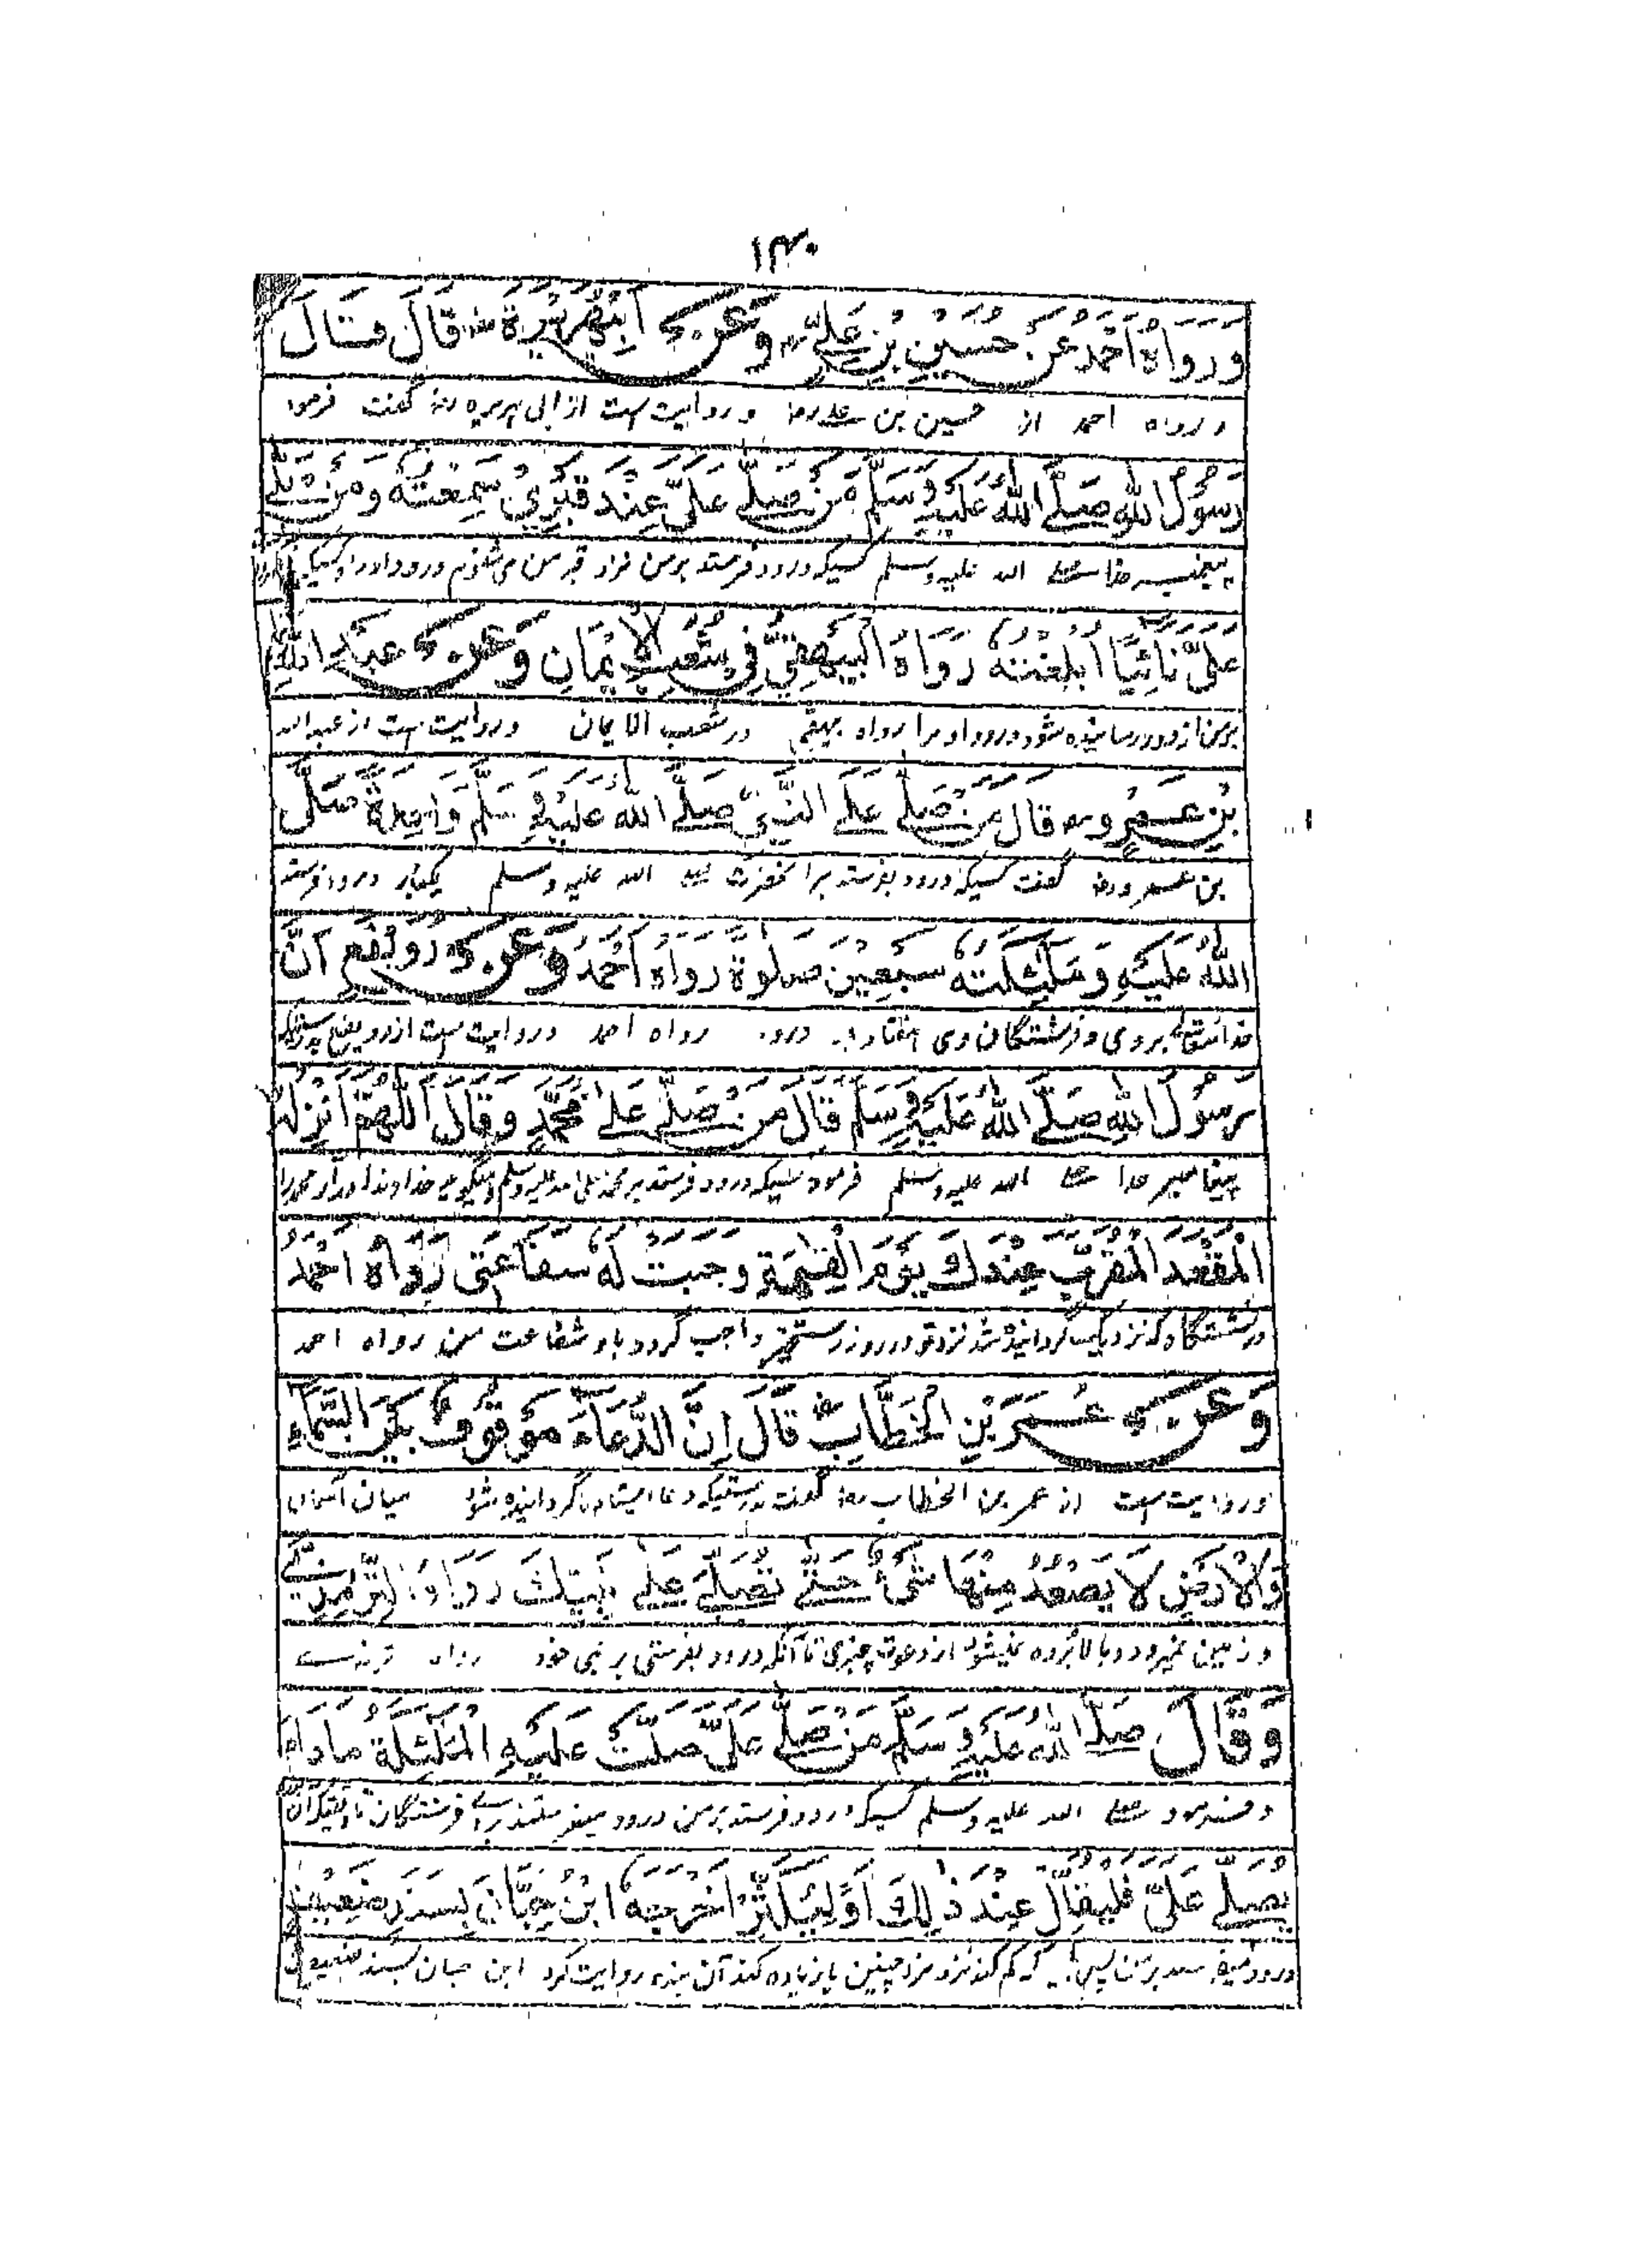 ۱۴۰
وَرَوَاهُ أَحْمَدُ عَنْ حُسَيْنِ بْنِ عَلِيٍّ رض وَعَنْ أَبِي هُرَيْرَةَ رض قَالَ قَالَ
و رواه احمد از حسین بن علی رض و روایت ست از ابی هریره رض گفت فرمود
رَسُوْلُ اللهِ صَلَّى اللهُ عَلَيْهِ وَسَلَّمَ مَنْ صَلَّى عَلَيَّ عِنْدَ قَبْرِيْ سَمِعْتُهُ وَمَنْ صَلَّى
پیغمبر خدا صلی الله علیه وسلم کسیکه درود فرستد بر من نزد قبر من می شنوم درود او را و کسیکه
عَلَيَّ نَائِيًا أُبْلِغْتُهُ رَوَاهُ الْبَيْهَقِيُّ فِي شُعَبِ الْإِيْمَانِ وَعَنْ عَبْدِ اللهِ
بر من از دور رسانیده شود درود او مرا رواه بیهقی در شعب الایمان و روایت ست از عبد الله
بْنِ عَمْرٍو رض قَالَ مَنْ صَلَّى عَلَى النَّبِيِّ صَلَّى اللهُ عَلَيْهِ وَسَلَّمَ وَاحِدَةً صَلَّى
بن عمرو رض گفت کسیکه درود بفرستد بر آنحضرت صلی الله علیه وسلم یکبار درود فرستد
اللهُ عَلَيْهِ وَمَلٰئِكَتُهُ سَبْعِيْنَ صَلٰوةً رَوَاهُ أَحْمَدُ وَعَنْ رُوَيْفِعٍ أَنَّ
خدا تعالی بر وی و فرشتگان وی هفتاد درود رواه احمد و روایت ست از رویفع بدرستیکه
رَسُوْلَ اللهِ صَلَّى اللهُ عَلَيْهِ وَسَلَّمَ قَالَ مَنْ صَلَّى عَلَى مُحَمَّدٍ وَقَالَ اَللّٰهُمَّ أَنْزِلْهُ
پیغامبر خدا صلی الله علیه وسلم فرمود کسیکه درود فرستد بر محمد صلی الله علیه وسلم و بگوید خداوندا فرود آر محمد را
الْمَقْعَدَ الْمُقَرَّبَ عِنْدَكَ يَوْمَ الْقِيٰمَةِ وَجَبَتْ لَهُ شَفَاعَتِيْ رَوَاهُ أَحْمَدُ
در نشستگاه که نزدیک گردانیده شد نزد تو در روز رستخیز واجب گردد باو شفاعت من رواه احمد
وَعَنْ عُمَرَ بْنِ الْخَطَّابِ رض قَالَ إِنَّ الدُّعَاءَ مَوْقُوْفٌ بَيْنَ السَّمَاءِ
و روایت ست از عمر بن الخطاب رض گفت بدرستیکه دعا ایستاده گردانیده شود میان آسمان
وَالْأَرْضِ لَا يَصْعَدُ مِنْهَا شَيْءٌ حَتّٰى تُصَلِّيَ عَلَى نَبِيِّكَ رَوَاهُ التِّرْمِذِيُّ
و زمین نمیرود و بالا برده نمیشود از دعوت چیزی تا آنکه درود بفرستی بر نبی خود رواه ترمذی
وَقَالَ صَلَّى اللهُ عَلَيْهِ وَسَلَّمَ مَنْ صَلَّى عَلَيَّ صَلَّتْ عَلَيْهِ الْمَلٰئِكَةُ مَا دَامَ
و فرمود صلی الله علیه وسلم کسیکه درود فرستد بر من درود میفرستند برای فرشتگان تا وقتیکه آن
يُصَلِّي عَلَيَّ فَلْيُقِلَّ عِنْدَ ذٰلِكَ أَوْ لِيُكْثِرْ أَخْرَجَهُ ابْنُ حِبَّانَ بِسَنَدٍ ضَعِيْفٍ
درود میفرستد بر من پس که کم کند نزد چنین یا زیاده کند آن بنده روایت کرد ابن حبان بسند ضعیف